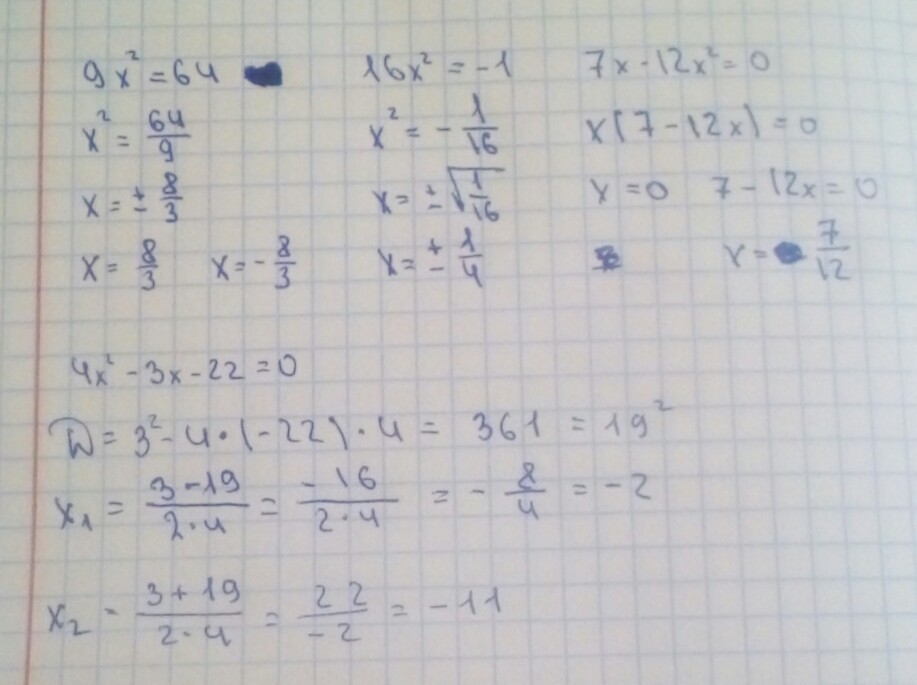 9x² = 64
x² = 64/9
x = ± 8/3
x = 8/3 x = - 8/3
16x² = -1
x² = - 1/16
x = ± √(1/16)
x = ± 1/4
7x - 12x² = 0
x(7 - 12x) = 0
x = 0 7 - 12x = 0
x = 7/12
4x² - 3x - 22 = 0
D = 3² - 4 · (-22) · 4 = 361 = 19²
x₁ = (3 - 19)/(2 · 4) = (-16)/(2 · 4) = - 8/4 = -2
x₂ = (3 + 19)/(2 · 4) = 22/(-2) = -11